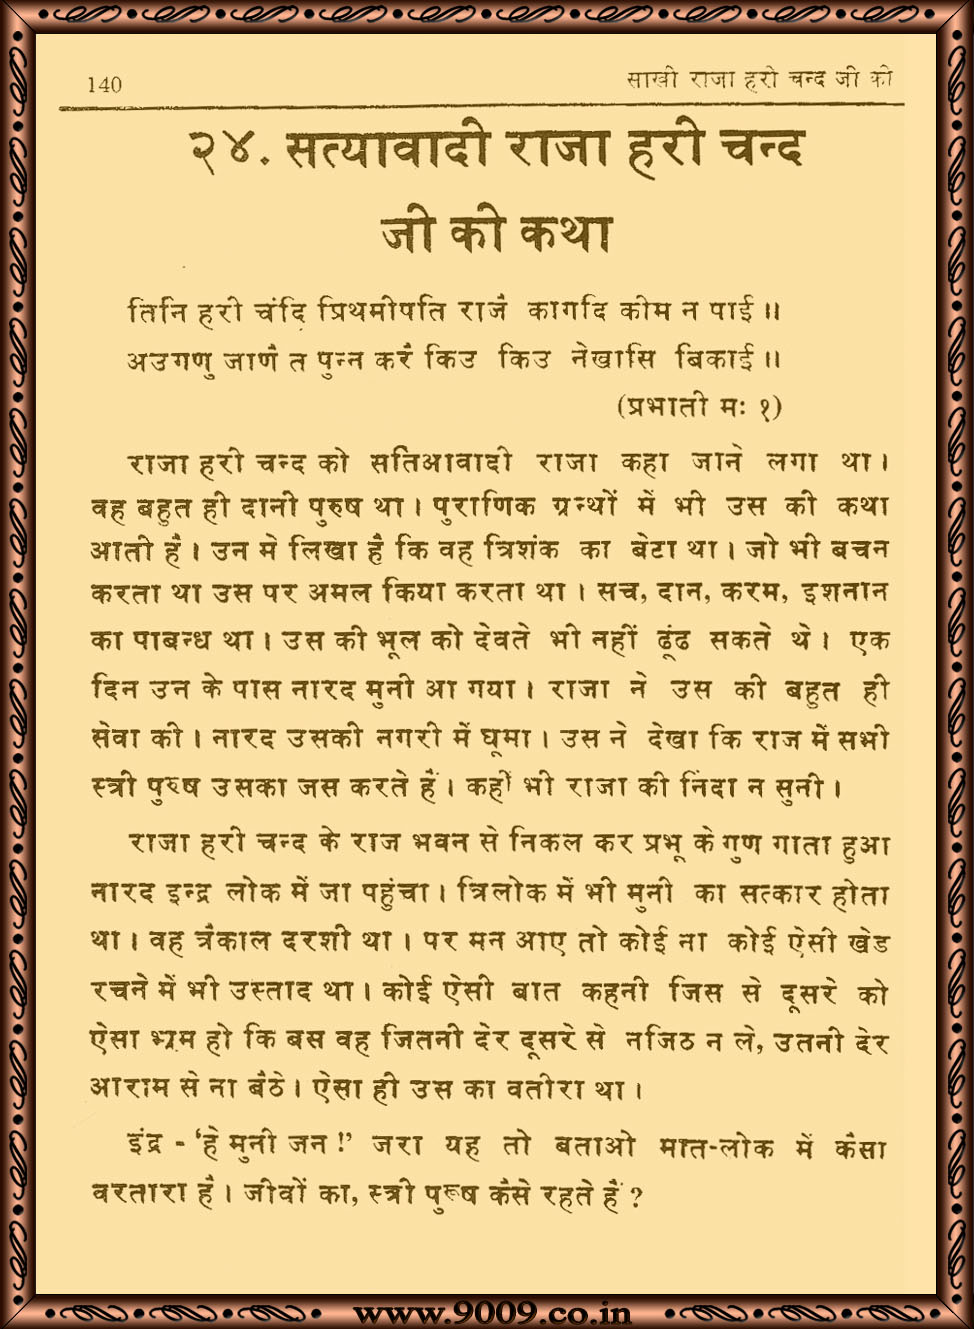 140 साखी राजा हरी चन्द जी की
२४. सत्यावादी राजा हरी चन्द
जी की कथा
तिनि हरी चंदि प्रिथमीपति राजै कागदि कीम न पाई॥
अउगणु जाणै त पुन्न करै किउ किउ नेखासि बिकाई॥
(प्रभाती मः १)
राजा हरी चन्द को सतिआवादी राजा कहा जाने लगा था।
वह बहुत ही दानी पुरुष था। पुराणिक ग्रन्थों में भी उस की कथा
आती है। उन मे लिखा है कि वह त्रिशंक का बेटा था। जो भी बचन
करता था उस पर अमल किया करता था। सच, दान, करम, इशनान
का पाबन्ध था। उस की भूल को देवते भी नहीं ढूंढ सकते थे। एक
दिन उन के पास नारद मुनी आ गया। राजा ने उस की बहुत ही
सेवा की। नारद उसकी नगरी में घूमा। उस ने देखा कि राज में सभी
स्त्री पुरुष उसका जस करते हैं। कहीं भी राजा की निंदा न सुनी।
राजा हरी चन्द के राज भवन से निकल कर प्रभू के गुण गाता हुआ
नारद इन्द्र लोक में जा पहुंचा। त्रिलोक में भी मुनी का सत्कार होता
था। वह त्रैकाल दरशी था। पर मन आए तो कोई ना कोई ऐसी खेड
रचने में भी उस्ताद था। कोई ऐसी बात कहनी जिस से दूसरे को
ऐसा भ्रम हो कि बस वह जितनी देर दूसरे से नजिठ न ले, उतनी देर
आराम से ना बैठे। ऐसा ही उस का वतीरा था।
इंद्र - 'हे मुनी जन !' जरा यह तो बताओ मात-लोक में कैसा
वरतारा है। जीवों का, स्त्री पुरूष कैसे रहते हैं ?
www.9009.co.in